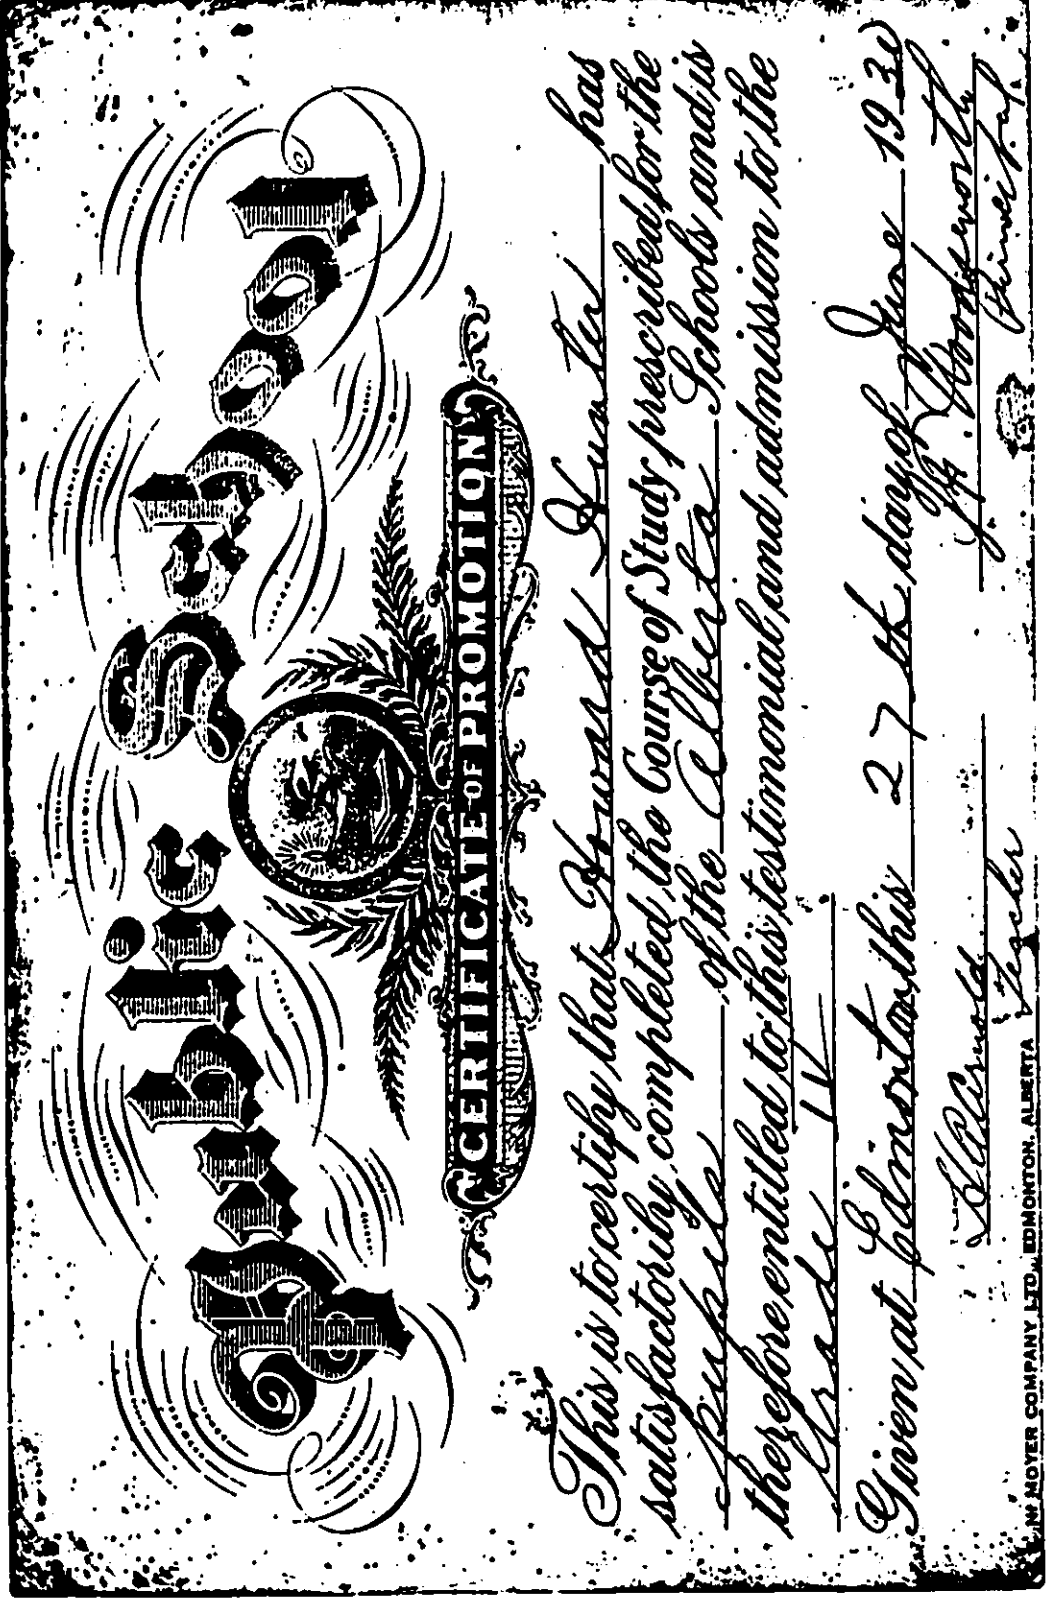 Public School
CERTIFICATE OF PROMOTION
This is to certify that Howard Hunter has
satisfactorily completed the Course of Study prescribed for the
pupils of the Alberta Schools and is
therefore entitled to this testimonial and admission to the
Grade IV
Given at Edmonton this 27th day of June 1930
J. R. Woodsworth
Principal
Arnold
Teacher
MOYER COMPANY LTD., EDMONTON, ALBERTA